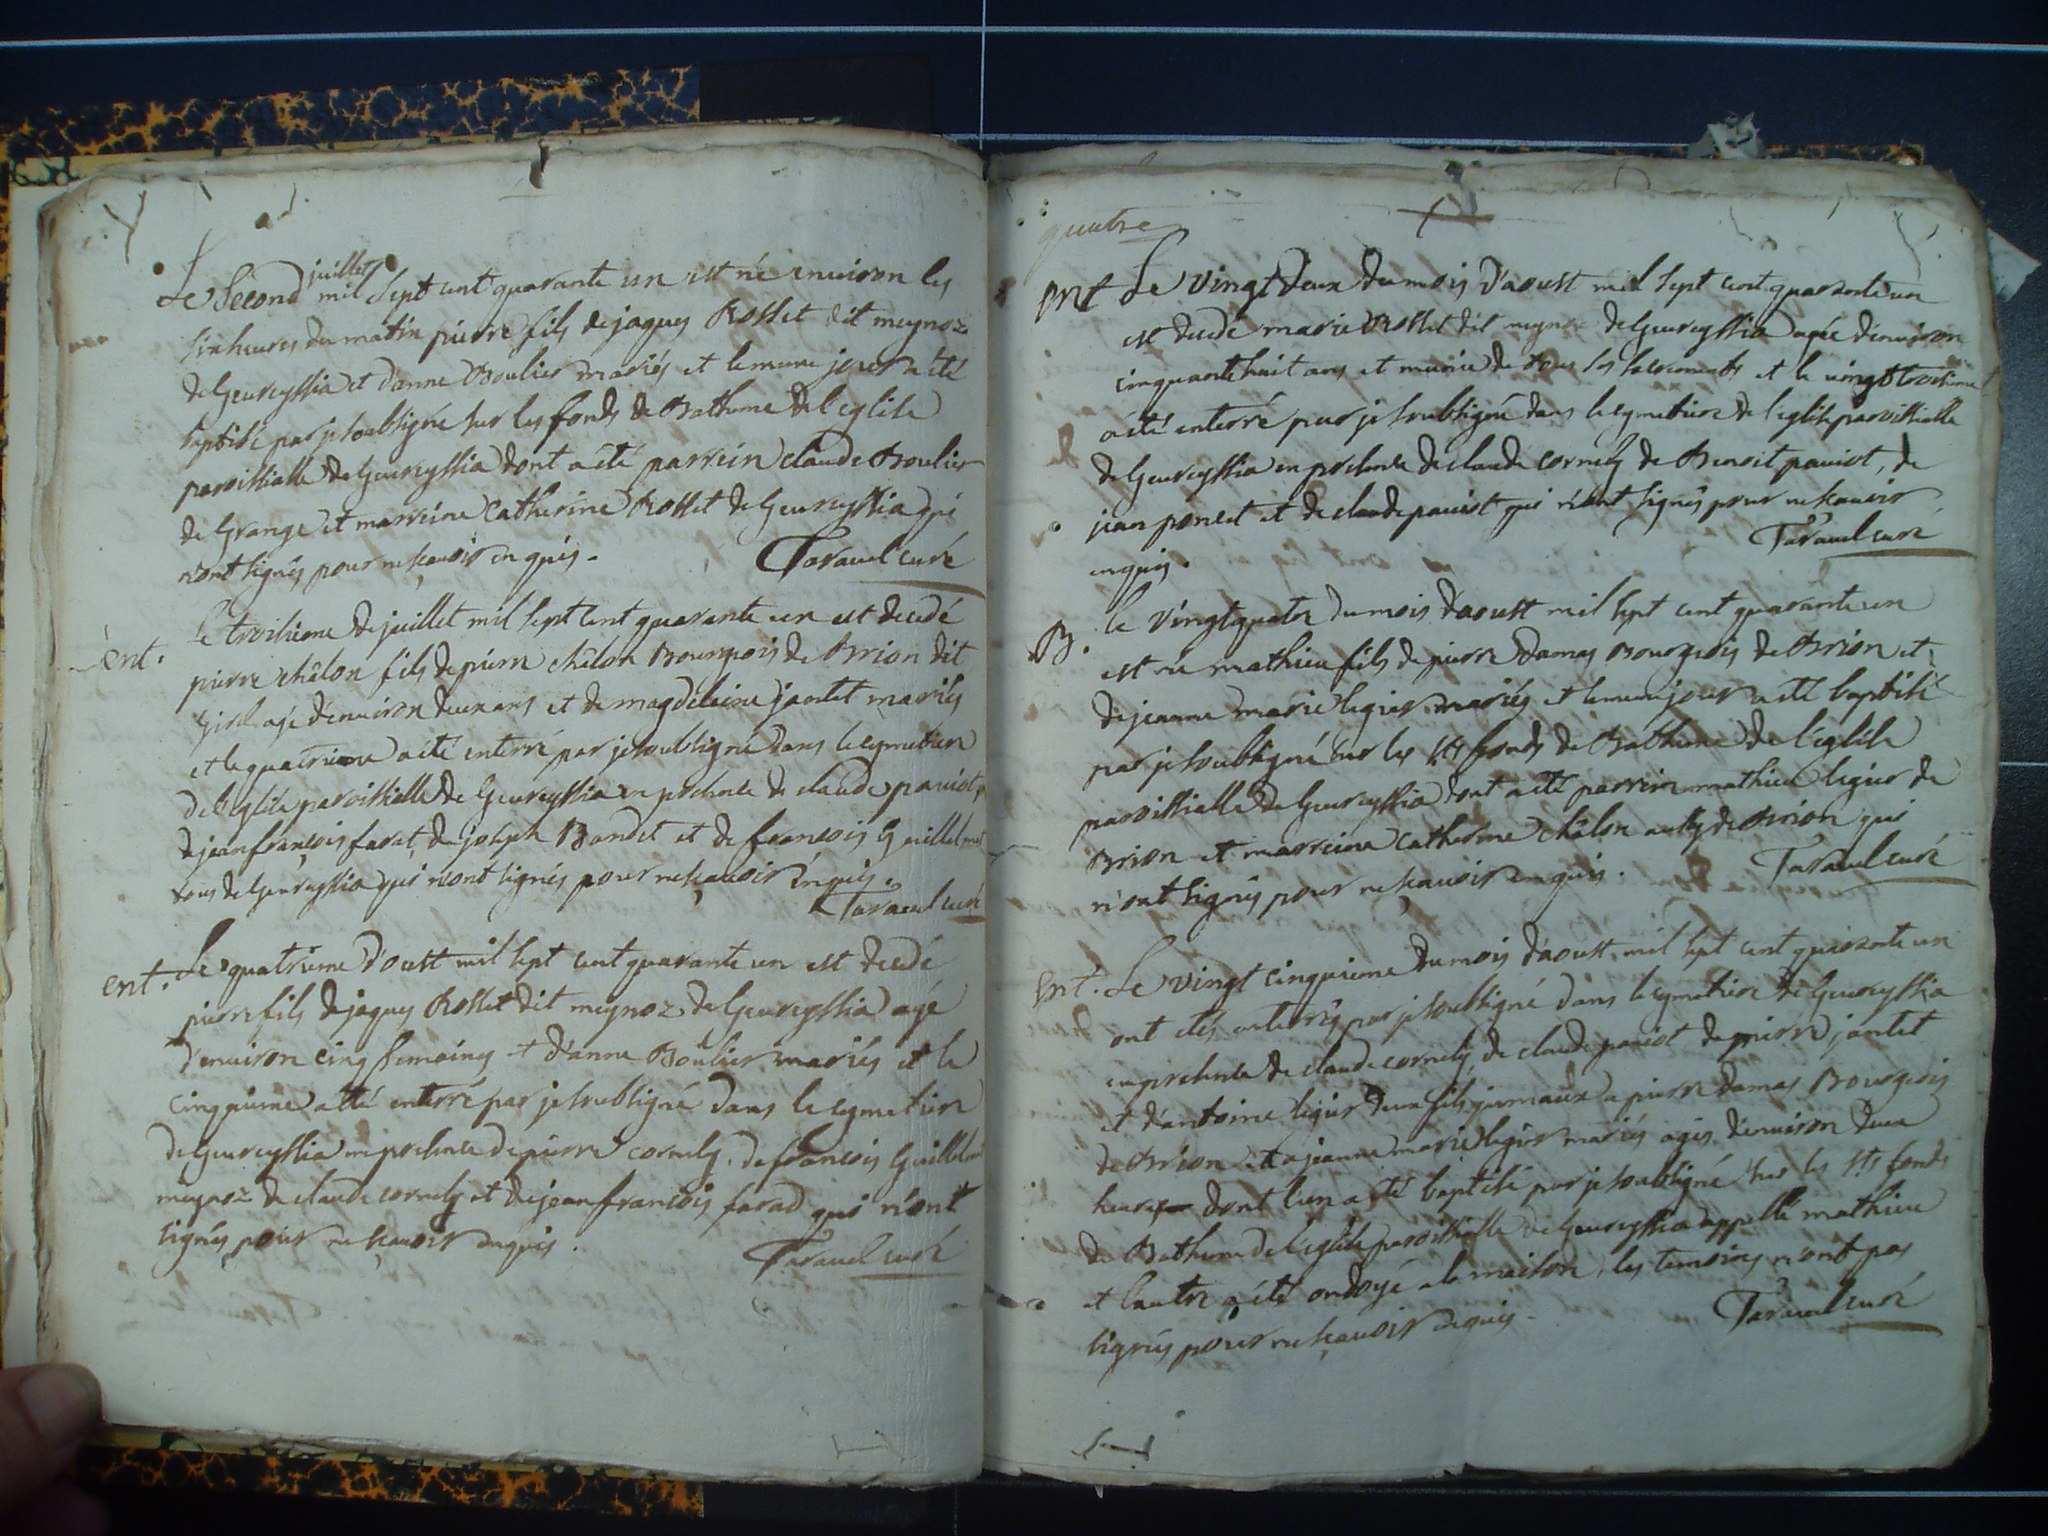 Le Second juillet mil sept cent quarante un est né environ les
six heures du matin pierre fils de jaques Rosset dit meynoz
de Geureyssia et d'anne Boulier mariés et le mesme jour a été
baptisé par je soubsigné sur les fonds de Bathême de l'eglise
paroissialle de Geureyssia dont a été parrein claude Boulier
de Grange et marreine catherine Rosset de Geureyssia qui
n'ont signés pour ne sçavoir enquis.
Taravel curé
ent. Le troisieme de juillet mil sept cent quarante un est decedé
pierre châlon fils de pierre châlon Bourgeois de Brion dit
agé d'environ deux ans et de magdeleine jantet mariés
et le quatrieme a été enterré par je soubsigné dans le cymetiere
de l'eglise paroissialle de Geureyssia en presence de claude paviot,
de jean françois farat, de joseph Bandet et de françois Guillelmet
tous de Geureyssia qui n'ont signés pour ne sçavoir enquis.
Taravel curé
ent. Le quatrieme d'oust mil sept cent quarante un est decedé
pierre fils de jaques Rosset dit meynoz de Geureyssia agé
d'environ cinq semaines et d'anne Boulier mariés et le
cinquieme a été enterré par je soubsigné dans le cymetiere
de Geureyssia en presence de pierre cornely, de françois Guillelmet
meynoz de claude cornely et de jean françois farad qui n'ont
signés pour ne sçavoir enquis.
Taravel curé
quatre
ent Le vingt deux du mois d'aoust mil sept cent quarante un
est decedé marie Rosset dit meynoz de Geureyssia agée d'environ
cinquante huit ans et munie de tous les sacrements et le vingt troisieme
a été enterré par je soubsigné dans le cymetiere de l'eglise paroissialle
de Geureyssia en presence de claude cornely de Benoit paviot, de
jean poncet et de claude paviot qui n'ont signés pour ne sçavoir
enquis.
Taravel curé
B. le vingt quatre du mois d'aoust mil sept cent quarante un
est né mathieu fils de pierre Damas Bourgeois de Brion et
de jeanne marie legier mariés et le mesme jour a été baptisé
par je soubsigné sur les sts fonds de Bathême de l'eglise
paroissialle de Geureyssia dont a été parrein mathieu legier de
Brion et marreine catherine châlon aussy de Brion qui
n'ont signés pour ne sçavoir enquis.
Taravel curé
Ent. Le vingt cinquieme du mois d'aoust mil sept cent quarante un
ont etés enterrés par je soubsigné dans le cymetiere de Geureyssia
en presence de claude cornely, de claude paviot de pierre jantet
et d'antoine legier deux fils jumeaux a pierre damas Bourgeois
de Brion et a jeanne marie legier mariés agés d'environ deux
heures dont l'un a été baptisé par je soubsigné sur les sts fonds
de Bathême de l'eglise paroissialle de Geureyssia appellé mathieu
et l'autre a été ondoyé a la maison, les temoins n'ont pas
signés pour ne sçavoir enquis.
Taravel curé